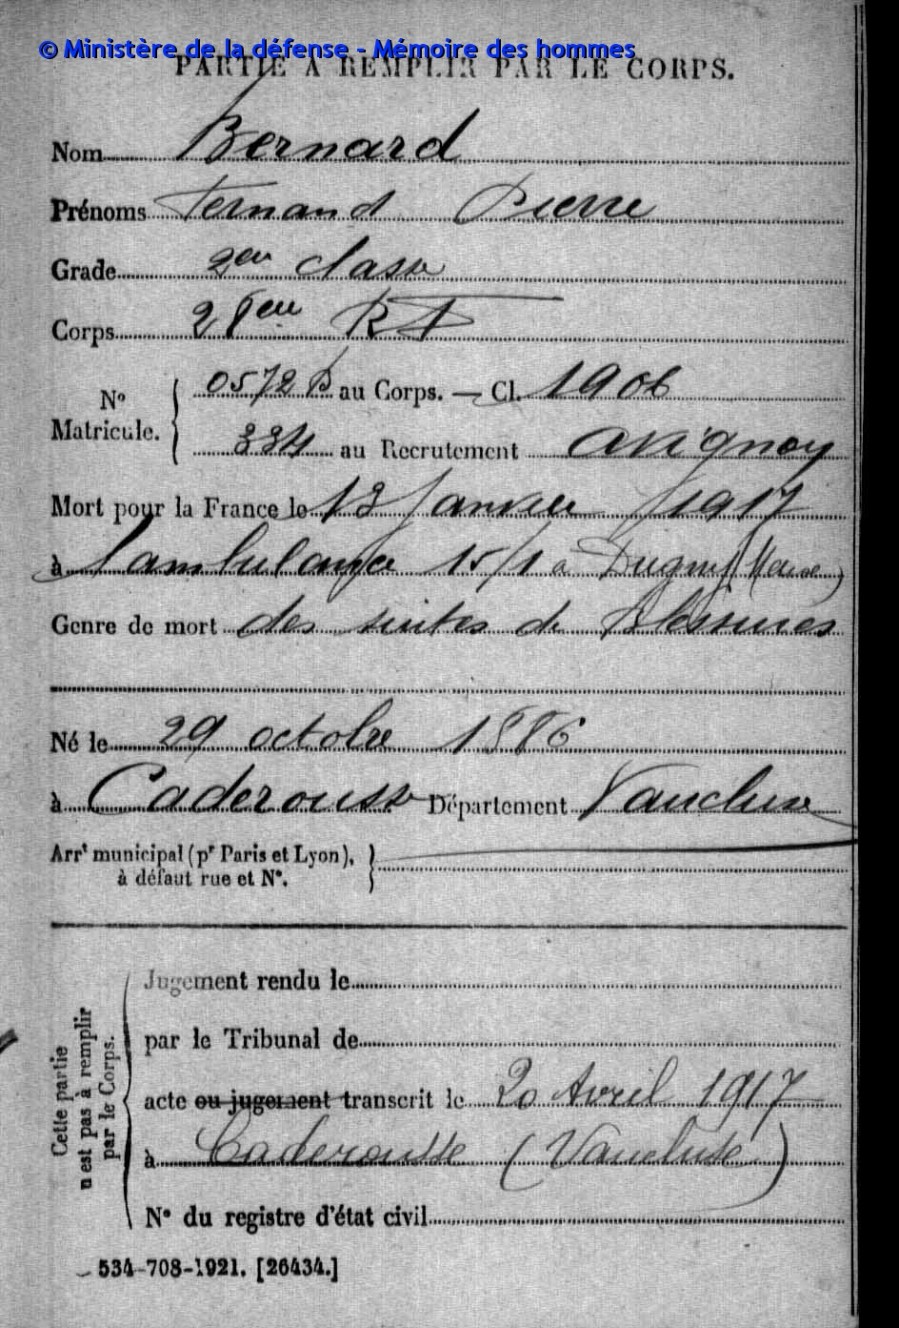 © Ministère de la défense - Mémoire des hommes
PARTIE À REMPLIR PAR LE CORPS.
Nom Bernard
Prénoms Fernand Pierre
Grade 2eme classe
Corps 28eme
Nº Matricule. 0572 B au Corps. — Cl. 1906
334 au Recrutement Avignon
Mort pour la France le 13 Janvier 1917
à l'ambulance 15/1 à Dugny (Meuse)
Genre de mort des suites de Blessures
Né le 29 octobre 1886
à Caderousse Département Vaucluse
Arrt municipal (pr Paris et Lyon),
à défaut rue et Nº.
Cette partie
n'est pas à remplir
par le Corps.
Jugement rendu le
par le Tribunal de
acte ou jugement transcrit le 20 Avril 1917
à Caderousse (Vaucluse)
Nº du registre d'état civil
534-708-1921. [26434.]